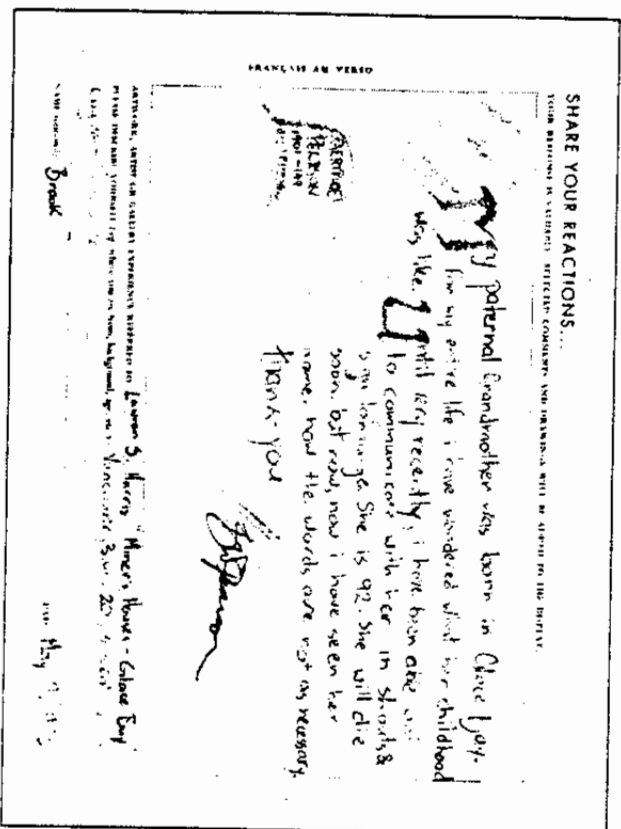 SHARE YOUR REACTIONS...
YOUR RESPONSE IS VALUABLE. SELECTED COMMENTS AND DRAWINGS WILL BE ADDED TO THE DISPLAY.
My paternal Grandmother was born in Glace Bay.
For my entire life i have wondered what her childhood
was like. Until very recently, i have been able
to communicate with her in shouts &
sign language. She is 92. She will die
soon. but now, now i have seen her
home, now the words are not as necessary.
thank-you
FRANÇAIS AU VERSO
ARTWORK, ARTIST OR GALLERY EXPERIENCE REFERRED TO Lawren S. Harris Miner's Houses - Glace Bay
PLEASE DESCRIBE YOURSELF Vancouver B.C. 20
NAME Brook
May